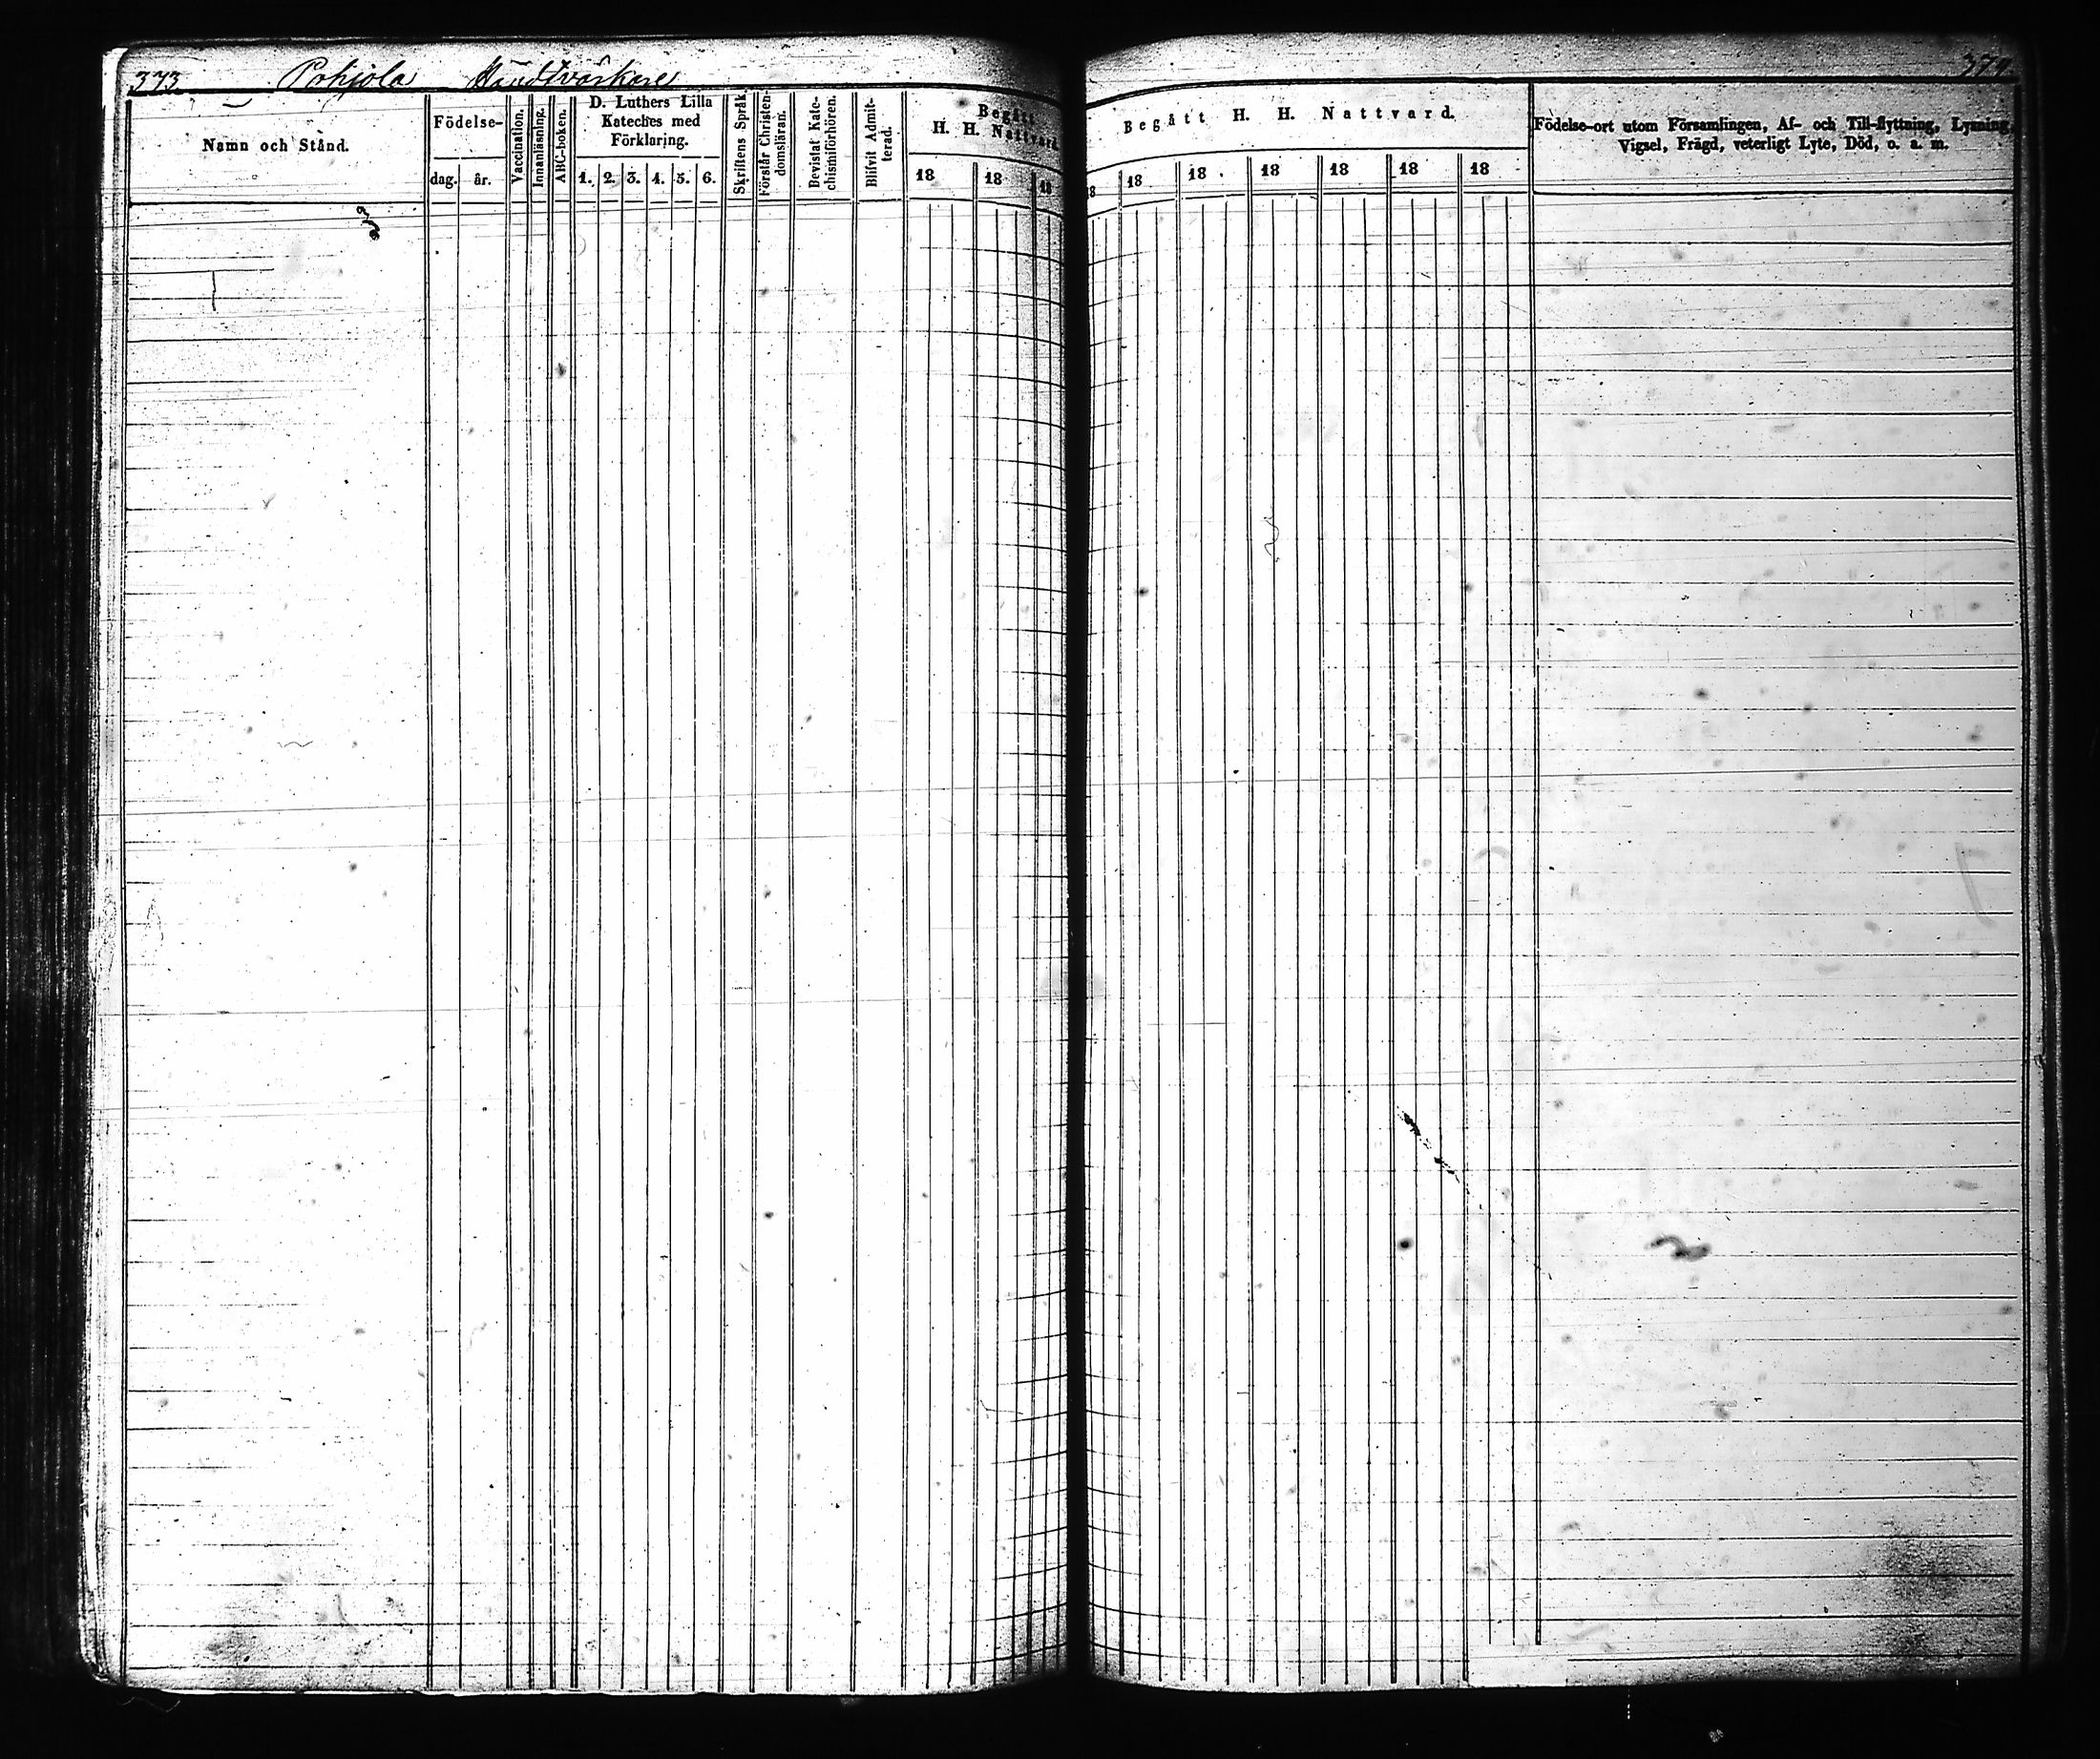 373. Pohjola Handtvärkare
Namn och Stånd.
Födelse-
dag. år.
Vaccination.
Innanläsning.
ABC-boken.
D. Luthers Lilla
Kateches med
Förklaring.
1. 2. 3. 4. 5. 6.
Skriftens Språk.
Förstår Christen-
domsläran.
Bevistat Kate-
chismiförhören.
Blifvit Admit-
terad.
Begått
H. H. Nattvard.
18 18 18
374.
Begått H. H. Nattvard.
18 18 18 18 18 18 18
Födelse-ort utom Församlingen, Af- och Till-flyttning, Lysning,
Vigsel, Frägd, veterligt Lyte, Död, o. a. m.